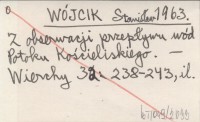 WÓJCIK Stanisław 1963.
Z obserwacji przepływu wód
Potoku Kościeliskiego. —
Wierchy 238-243, il.